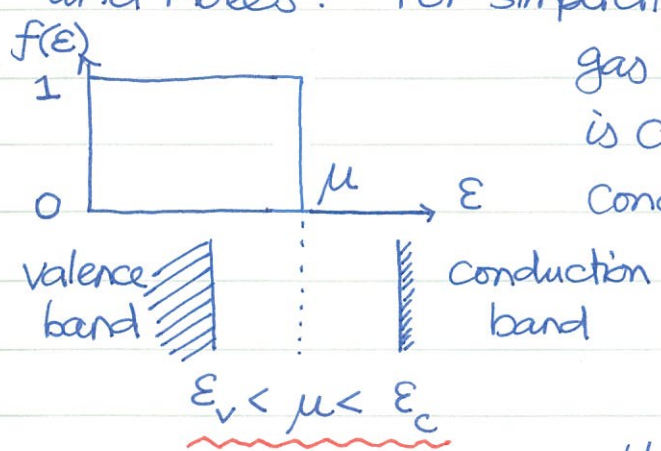 f(ε)
gas
1
is
μ
0
ε
Con
valence
band
conduction
band
ε_v < μ < ε_c